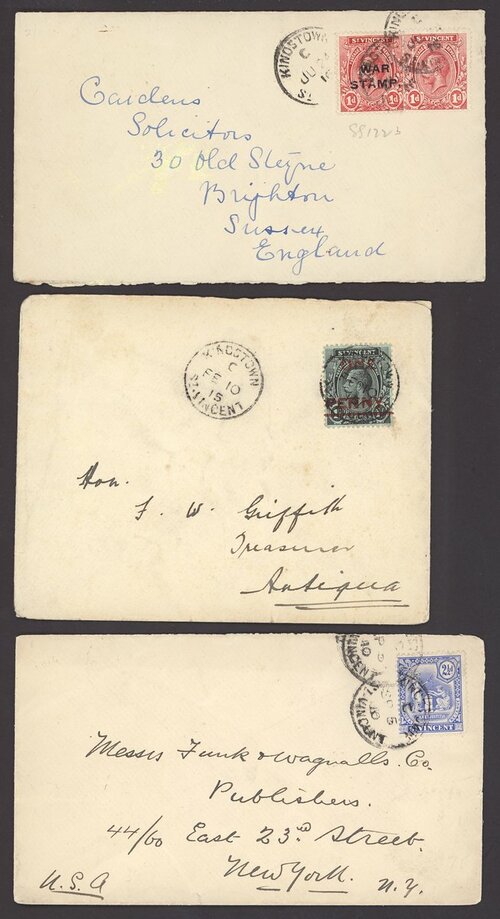 KINGSTOWN
C
JU
ST.VINCENT ST.VINCENT
WAR
STAMP.
1d 1d 1d 1d
SS122b
Gardens
Solicitors
30 Old Steyne
Brighton
Sussex
England
KINGSTOWN
C
FE 10
15
ST. VINCENT
ST VINCENT
ONE
PENNY.
Hon.
F. W. Griffith
Treasurer
Antigua
2½d
ST VINCENT
Messrs Funk & Wagnalls. Co.
Publishers.
44/60 East 23rd Street.
New York. N.Y.
U.S.A